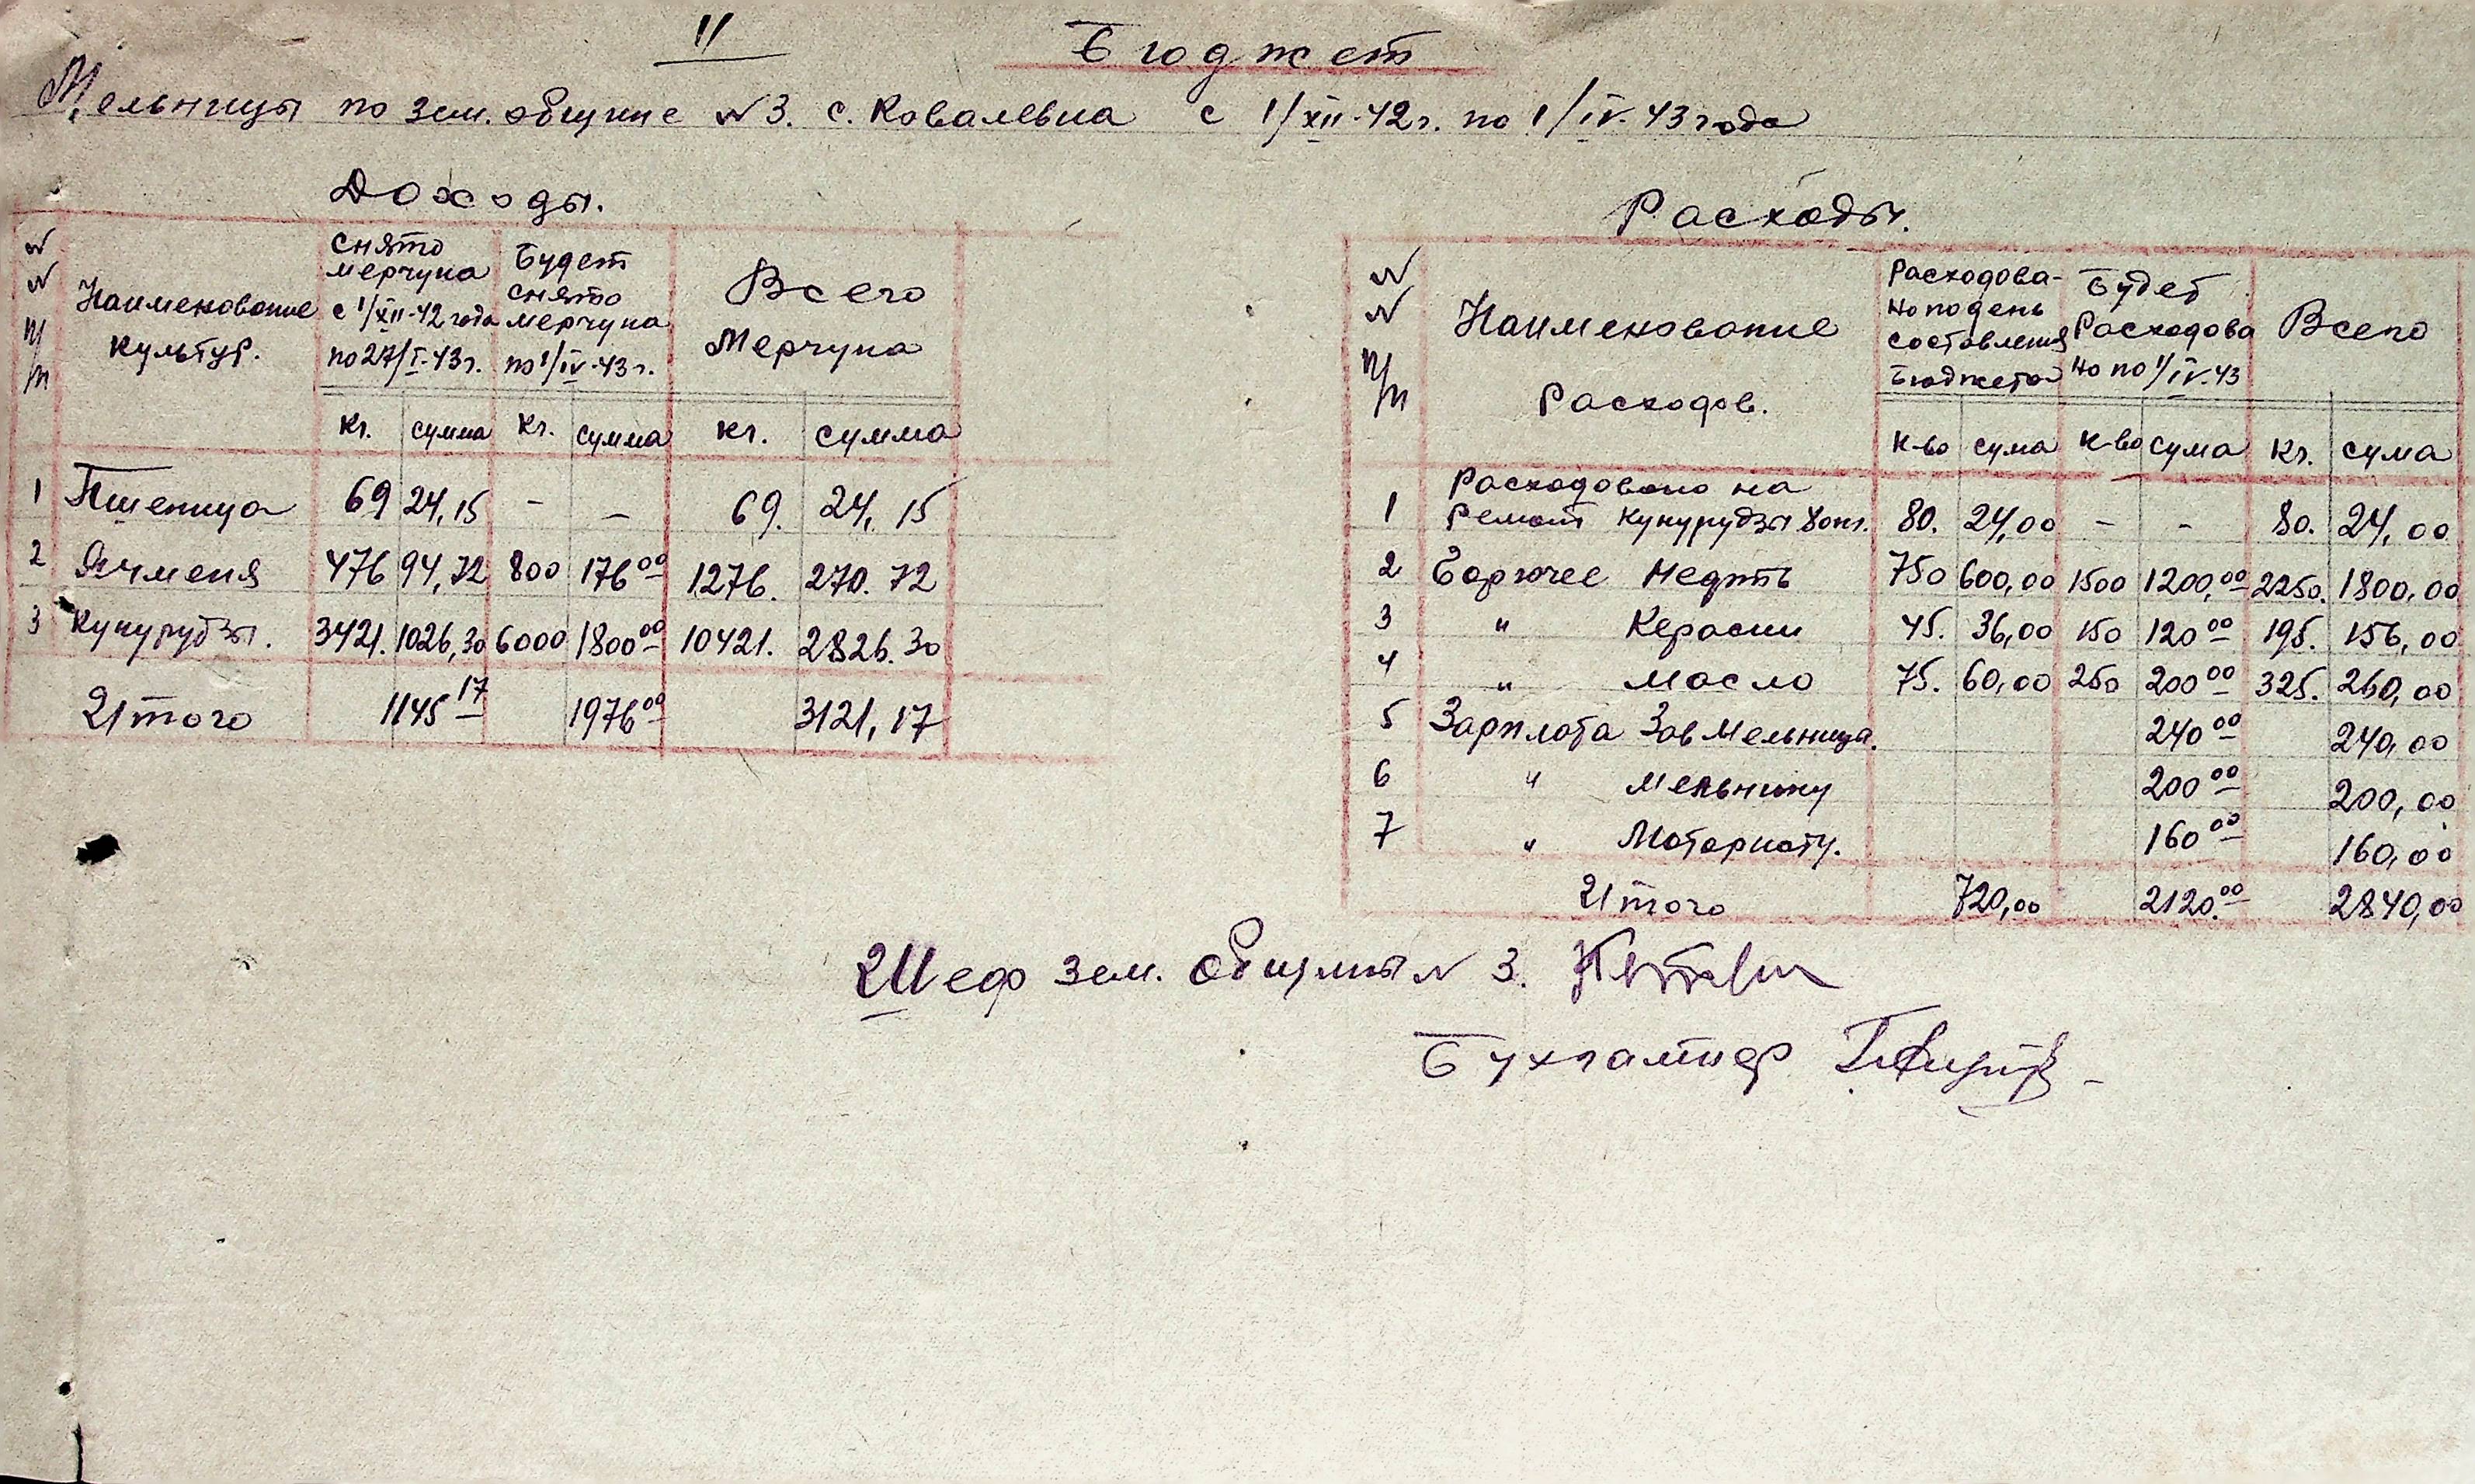 II
Бюджет
Мельницы по зем. общине №3. с. Ковалевка с 1/XII-42г. по 1/IV-43 года
Доходы.
№ № п/п | Наименование культур. | Снято мерчука с 1/XII-42 года по 27/I-43г. | Будет снято мерчука по 1/IV-43г. | Всего Мерчука
кг. | сумма | кг. | сумма | кг. | сумма
1 | Пшеница | 69 | 24,15 | - | - | 69. | 24,15
2 | Ячменя | 476 | 94,72 | 800 | 176 00 | 1276. | 270.72
3 | Кукурудзы. | 3421. | 1026,30 | 6000 | 1800 00 | 10421. | 2826.30
Итого | 1145 17 | 1976 00 | 3121,17
Расходы.
№ № п/п | Наименование Расходов. | Расходовано по день составления Бюджета | Будет Расходовано по 1/IV-43 | Всего
к-во | сума | к-во | сума | кг. | сума
1 | Расходовано на
Ремонт кукурудзы 80кг. | 80. | 24,00 | - | - | 80. | 24,00
2 | Горючее Нефть | 750 | 600,00 | 1500 | 1200,00 | 2250. | 1800,00
3 | " Керасин | 45. | 36,00 | 150 | 120 00 | 195. | 156,00
4 | " Масло | 75. | 60,00 | 250 | 200 00 | 325. | 260,00
5 | Зарплата Зав Мельница. | 240 00 | 240,00
6 | " Мельнику | 200 00 | 200,00
7 | " Матористу. | 160 00 | 160,00
Итого | 720,00 | 2120.00 | 2840,00
Шеф зем. общины № 3.
Бухгалтер